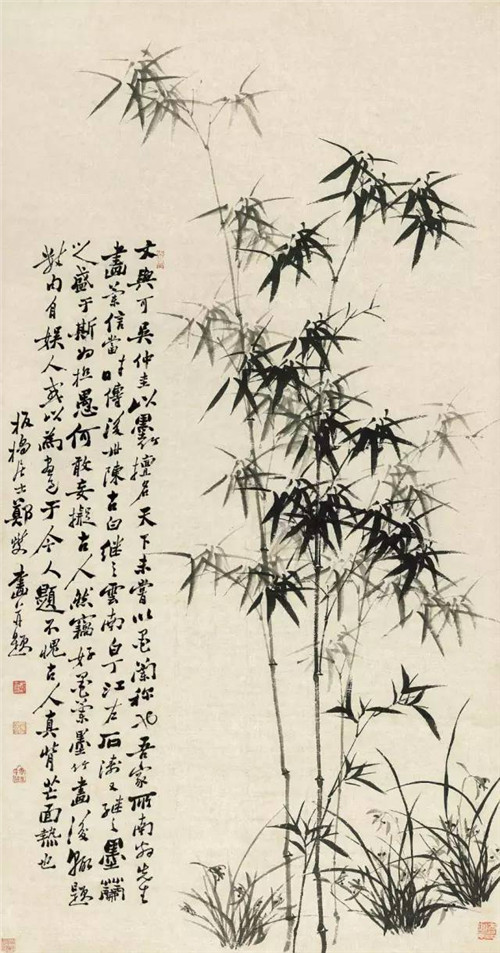 文與可吳仲圭以墨竹擅名天下未嘗以墨蘭稱也吾家所南翁先生
畫蘭信當時傳後世陳古白繼之雲南白丁江左石濤又繼之墨蘭
之盛于斯為極愚何敢妄擬古人然竊好墨蘭墨竹畫後輒題
自娛人或以為畫于今人題不愧古人真背芒面熱也
板橋居士鄭燮畫并題